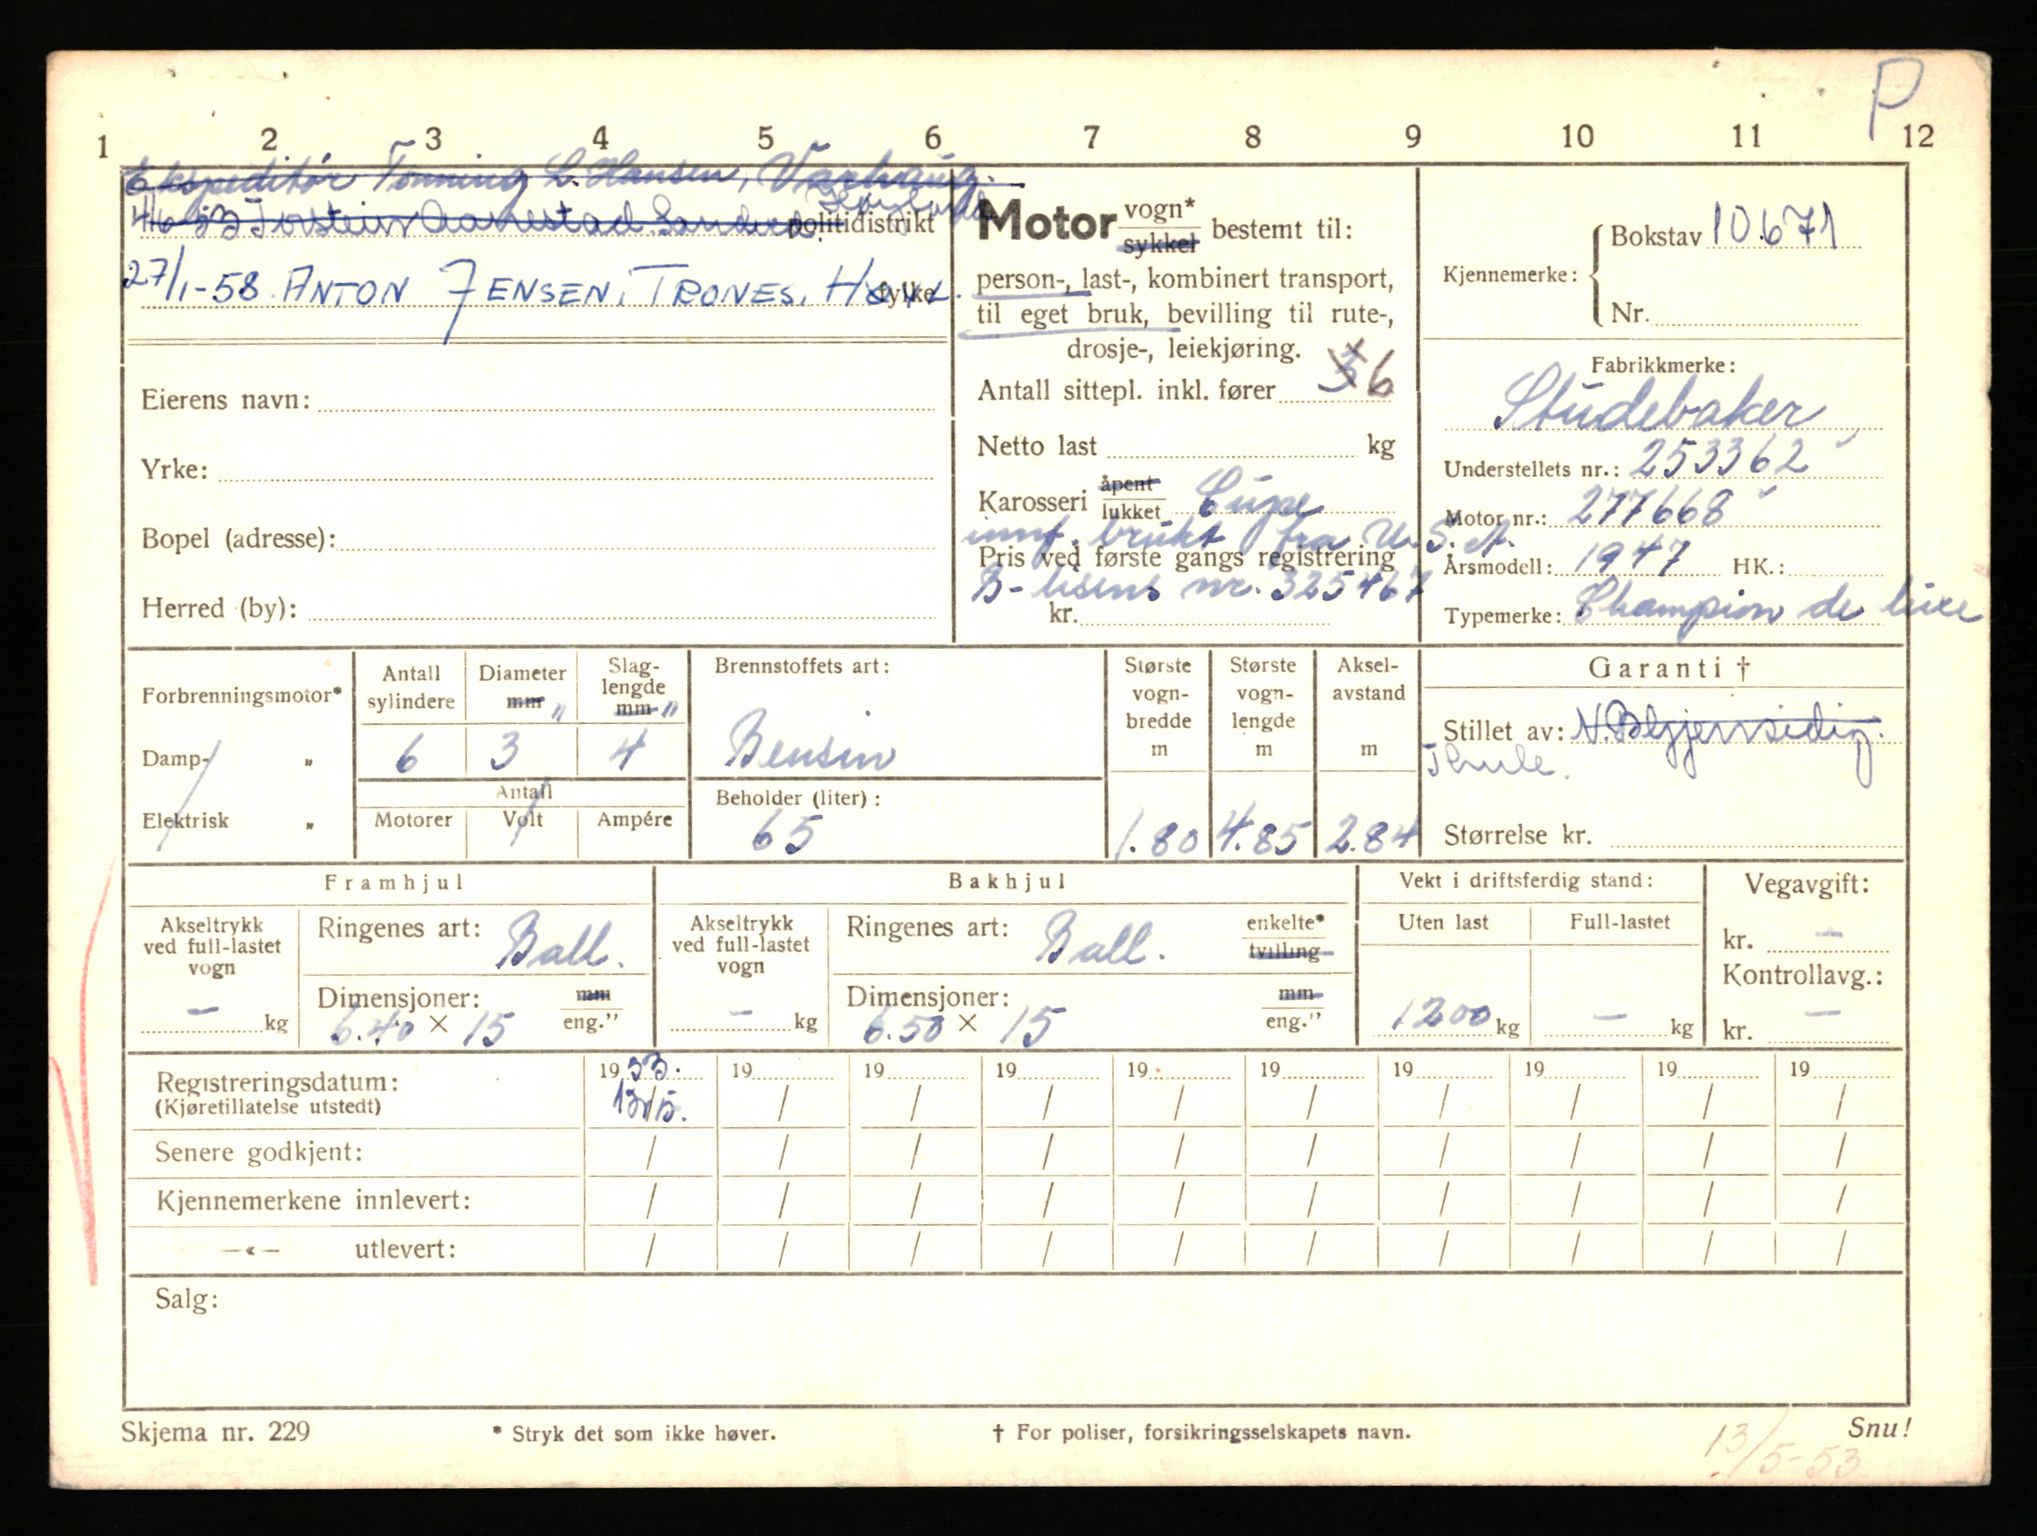 P
1 2 3 4 5 6 7 8 9 10 11 12
Ekspeditør Tønning L. Hansen, Varhaug.
4/6-53 Torstein Aanestad Sandnes politidistrikt
Høyland
27/1-58. ANTON JENSEN, TRONES, fylke
Eierens navn:
Yrke:
Bopel (adresse):
Herred (by):
Motor vogn* sykkel bestemt til:
person-, last-, kombinert transport,
til eget bruk, bevilling til rute-,
drosje-, leiekjøring.
Antall sittepl. inkl. fører 6
Netto last kg
Karosseri åpent lukket Cupe
innf. brukt fra U.S.A.
Pris ved første gangs registrering
B-lisens nr. 325467
kr.
Kjennemerke:
Bokstav 10671
Nr.
Fabrikkmerke:
Studebaker
Understellets nr.: 253362
Motor nr.: 277668
Årsmodell: 1947 HK.:
Typemerke: Champion de luxe
Forbrenningsmotor*
Damp- "
Elektrisk "
Antall sylindere 6
Diameter mm " 3
Slag-lengde mm " 4
Antall
Motorer Volt Ampére
Brennstoffets art:
Bensin
Beholder (liter):
65
Største vogn-bredde m 1.80
Største vogn-lengde m 4.85
Aksel-avstand m 2.84
Garanti †
Stillet av:
Thule.
Størrelse kr.
Framhjul
Akseltrykk ved full-lastet vogn
– kg
Ringenes art: Ball.
Dimensjoner: mm
6.40 × 15 eng."
Bakhjul
Akseltrykk ved full-lastet vogn
– kg
Ringenes art: Ball. enkelte* tvilling
Dimensjoner: mm
6.50 × 15 eng."
Vekt i driftsferdig stand:
Uten last Full-lastet
1200 kg – kg
Vegavgift:
kr. –
Kontrollavg.:
kr. –
Registreringsdatum: 1953. 19 19 19 19 19 19 19 19 19
(Kjøretillatelse utstedt) 13/5. / / / / / / / / /
Senere godkjent: / / / / / / / / / /
Kjennemerkene innlevert: / / / / / / / / / /
—«— utlevert: / / / / / / / / / /
Salg:
Skjema nr. 229 * Stryk det som ikke høver. † For poliser, forsikringsselskapets navn. Snu!
13/5-53